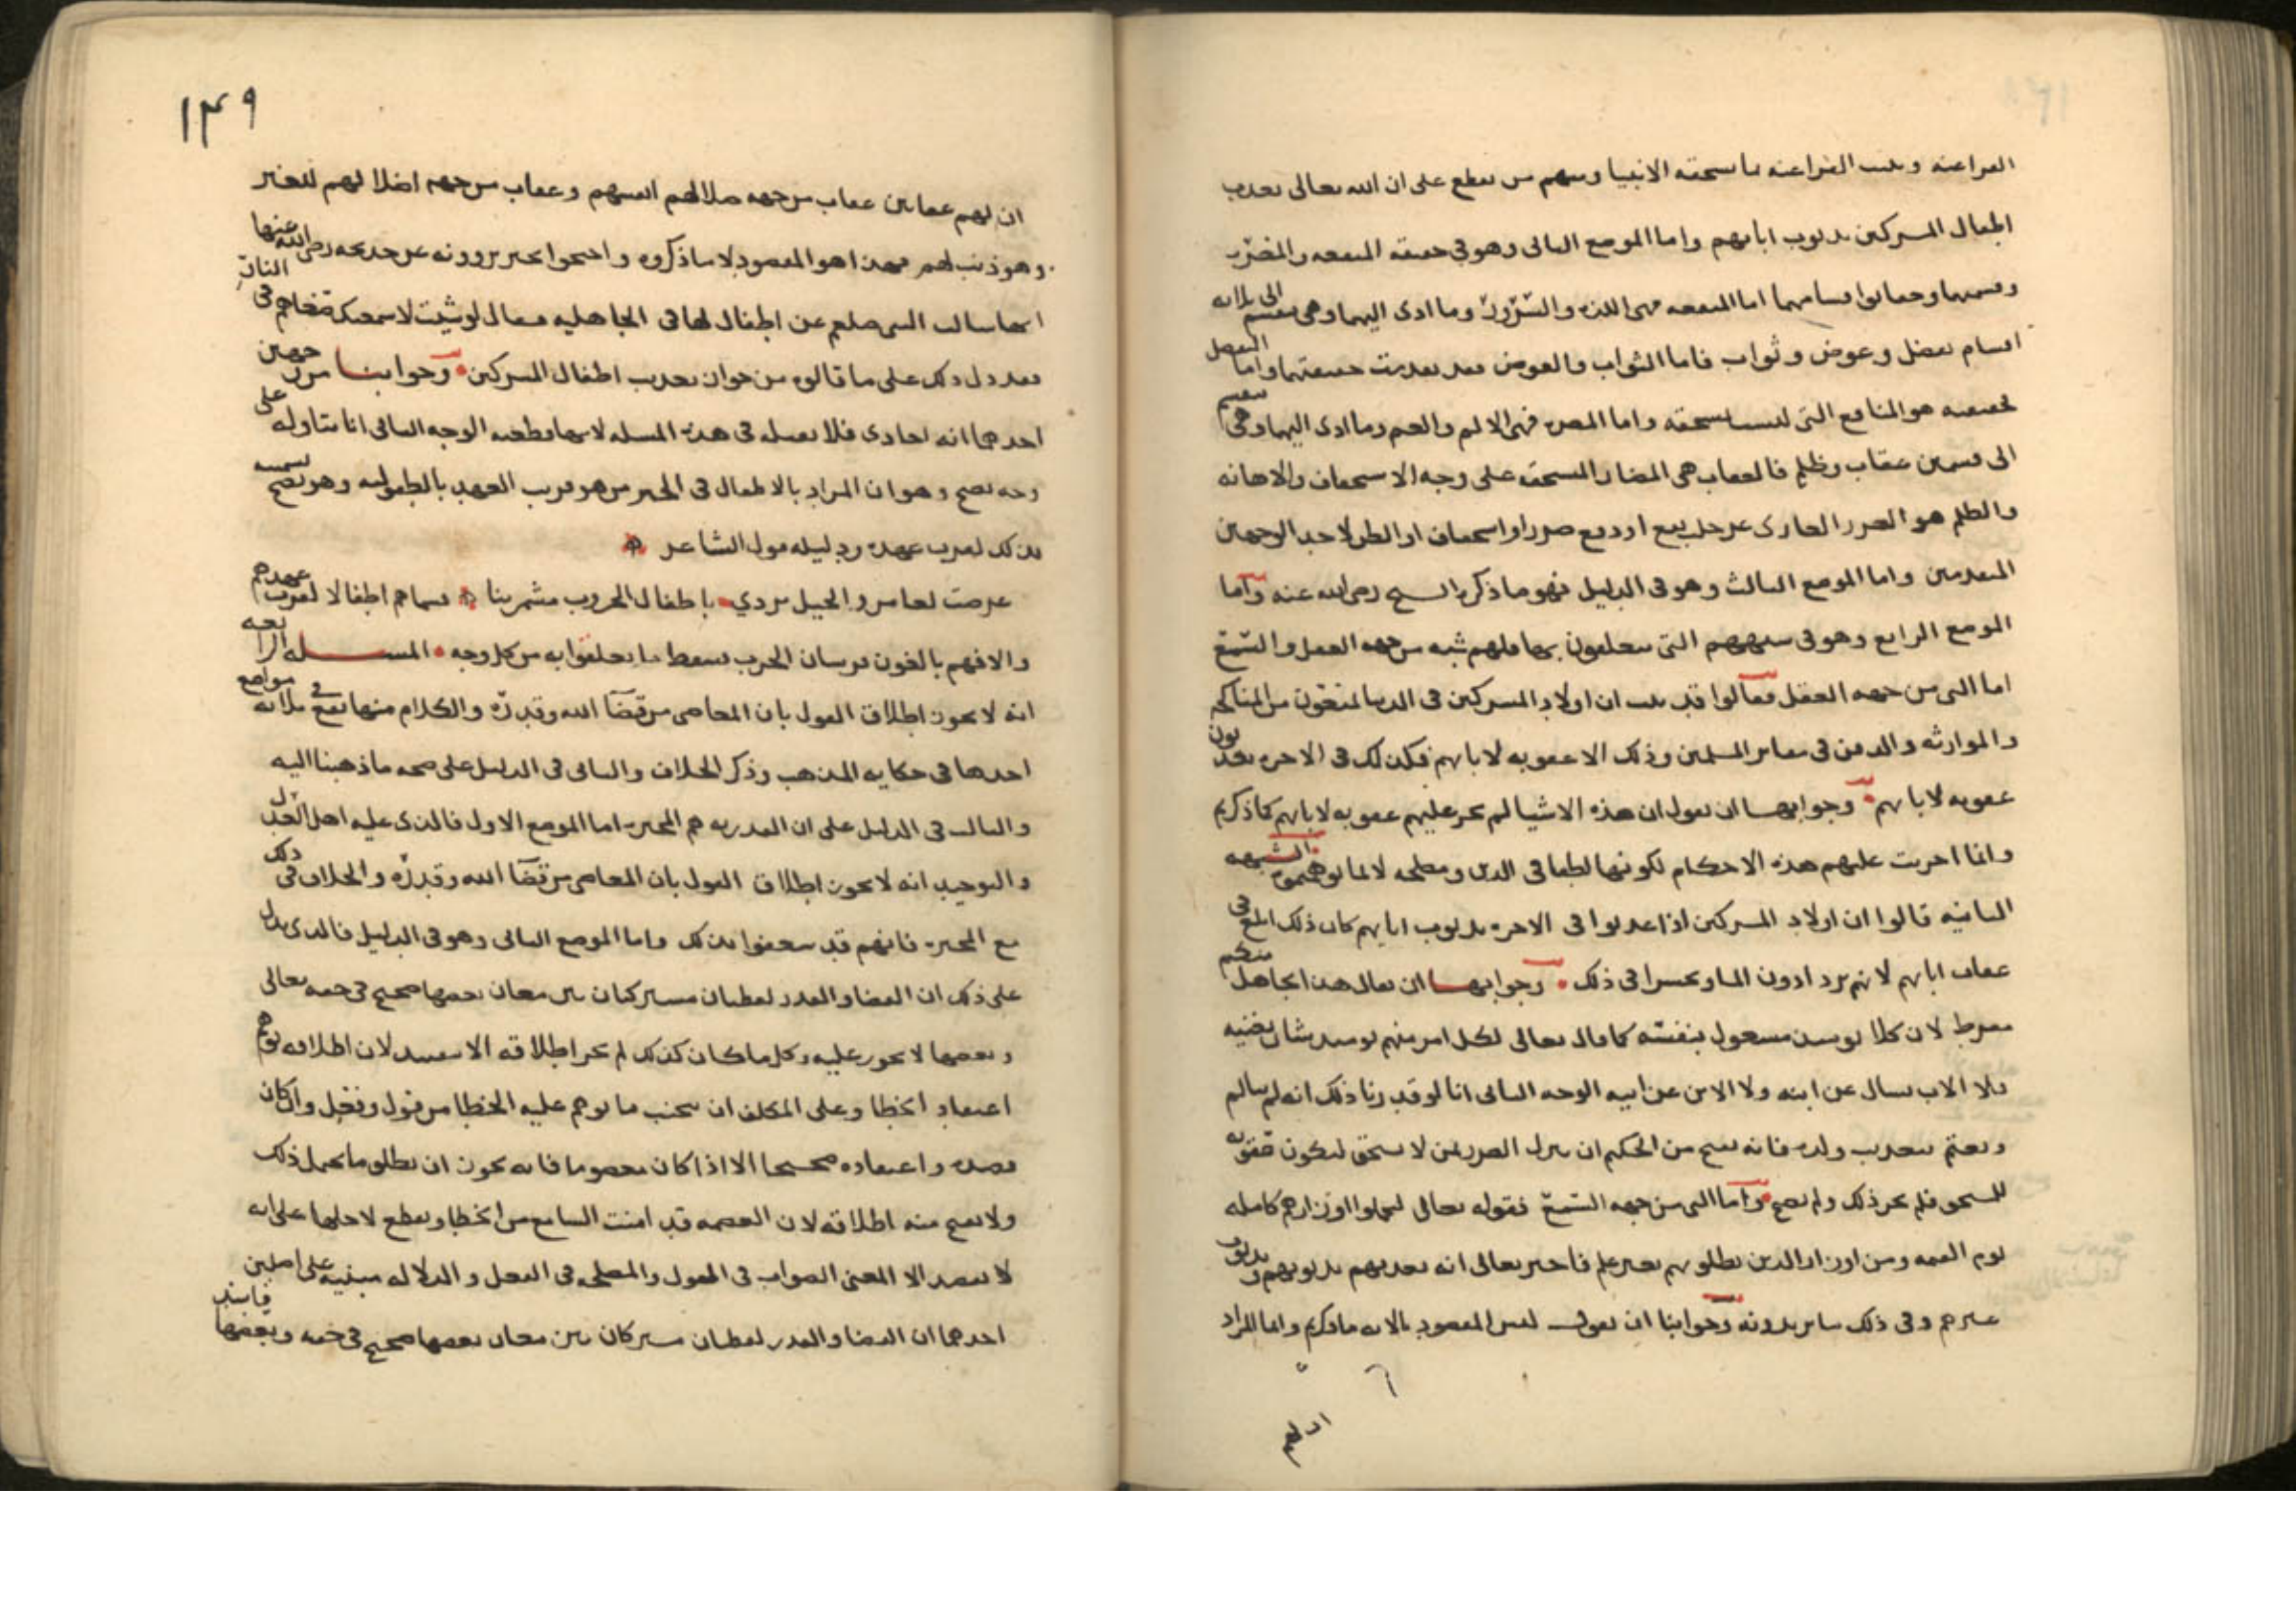 الفراعنه ويثيب الفراعنه بما يستحقه الانبيا ومنهم من يقطع على ان الله تعالى يعذب
اطفال المشركين بذنوب ابايهم واما الموضع الثانى وهو فى حقيقه المنفعه والمضره
وقسمتهما وحقايق اقسامهما اما المنفعه فهى اللذه والسرور وما ادى اليهما وهى تنقسم الى ثلاثه
اقسام تفضل وعوض وثواب فاما الثواب والعوض فقد تقدمت حقيقتهما واما التفضل
فحقيقته هو المنافع التى ليست مستحقه واما المضره فهى الالم والغم وما ادى اليهما وهى تنقسم
الى قسمين عقاب وظلم فالعقاب هى المضار المستحقه على وجه الاستخفاف والاهانه
والظلم هو الضرر العارى عن جلب نفع او دفع ضرر او استحقاق او الظن لاحد الوجهين
المتقدمين واما الموضع الثالث وهو فى الدليل فهو ما ذكره الشيخ رضى الله عنه واما
الموضع الرابع وهو فى شبههم التى يتعلقون بها فلهم شبه من جهه العقل والسمع
اما التى من جهه العقل فقالوا قد ثبت ان اولاد المشركين فى الدنيا لممنعون من المناكحه
والموارثه والدفن فى مقابر المسلمين وذلك الا عقوبه لابايهم فكذلك فى الاخره يعذبون
عقوبه لابايهم وجوابها ان نقول ان هذه الاشيا لم تجر عليهم عقوبه لابايهم كما ذكرتم
وانما اجريت عليهم هذه الاحكام لكونها لطفا فى الدين ومصلحه لا لما توهمتموه الشبهه
الثانيه قالوا ان اولاد المشركين اذا عذبوا فى الاخره بذنوب ابايهم كان ذلك ابلغ فى
عقاب ابايهم لانهم يزدادون الما وتحسرا فى ذلك وجوابها ان يقال هذا تجاهل منكم
مفرط لان كلا يومئذ مشغول بنفسه كما قال تعالى لكل امرء منهم يومئذ شان يغنيه
فلا الاب يسال عن ابنه ولا الابن عن ابيه الوجه الثانى انا لو قدرنا ذلك انه لم يتالم
ويغتم بتعذيب ولده فانه يقبح من الحكيم ان ينزل الضرر بمن لا يستحق ليكون عقوبه
للمستحق فلم يجز ذلك ولم يصح واما التى من جهه السمع فقوله تعالى ليحملوا اوزارهم كامله
يوم القيمه ومن اوزار الذين يضلونهم بغير علم فاخبر تعالى انه يعذبهم بذنوبهم وبذنوب
غيرهم وفى ذلك ما يريدونه وجوابنا ان نقول ليس المقصود بالايه ما ذكرتم وانما المراد
١٤٩
ان لهم عقابين عقاب من جهه ضلالهم انفسهم وعقاب من جهه اضلالهم للغير
وهو ذنب لهم فهذا هو المقصود لا ما ذكروه واحتجوا بخبر يروونه عن خديجه رضى الله عنها
انها سالت النبى صلعم عن اطفال لها فى الجاهليه فقال لو شئت لاسمعتك ضغاهم فى النار
فقد دل ذلك على ما قالوه من جواز تعذيب اطفال المشركين وجوابنا من وجهين
احدهما انه احادى فلا نقبله فى هذه المساله لانها قطعيه الوجه الثانى انا نتاوله على
وجه يصح وهو ان المراد بالاطفال فى الخبر من هو قريب العهد بالطفوليه وهو يصح تسميته
بذلك لقرب عهده ودليله قول الشاعر
عرضت لعامر والخيل تردي باطفال الحروب مشمرينا فسماهم اطفالا لقرب عهدهم
والا فهم بالغون فرسان الحرب فسقط ما تعلقوا به من كل وجه المسله الرابعه
انه لا يجوز اطلاق القول بان المعاصى من قضا الله وقدره والكلام منها يقع فى ثلاثه مواضع
احدها فى حكايه المذهب وذكر الخلاف والثانى فى الدليل على صحه ما ذهبنا اليه
والثالث فى الدليل على ان القدريه هم المجبره اما الموضع الاول فالذى عليه اهل العدل
والتوحيد انه لا يجوز اطلاق القول بان المعاصى من قضا الله وقدره والخلاف فى ذلك
مع المجبره فانهم قد شغفوا بذلك واما الموضع الثانى وهو فى الدليل فالذى يدل
على ذلك ان القضا والقدر لفظتان مشتركتان بين معان بعضها صحيح فى حقه تعالى
وبعضها لا يجوز عليه وكل ما كان كذلك لم يجز اطلاقه الا بتقييد لان اطلاقه يوهم
اعتقاد الخطا وعلى المكلف ان يجتنب ما يوهم عليه الخطا من قول وفعل وان كان
قصده واعتقاده صحيحا الا اذا كان معصوما فانه يجوز ان يطلق ما يحمل ذلك
ولا يقبح منه اطلاقه لان العصمه قد امنت السامع من الخطا ويقطع لاجلها على انه
لا يقصد الا المعنى الصواب فى القول والمصلحه فى الفعل والدلاله مبنيه على اصلين
احدهما ان القضا والقدر لفظتان مشتركان بين معان بعضها صحيح فى حقه وبعضها فاسد